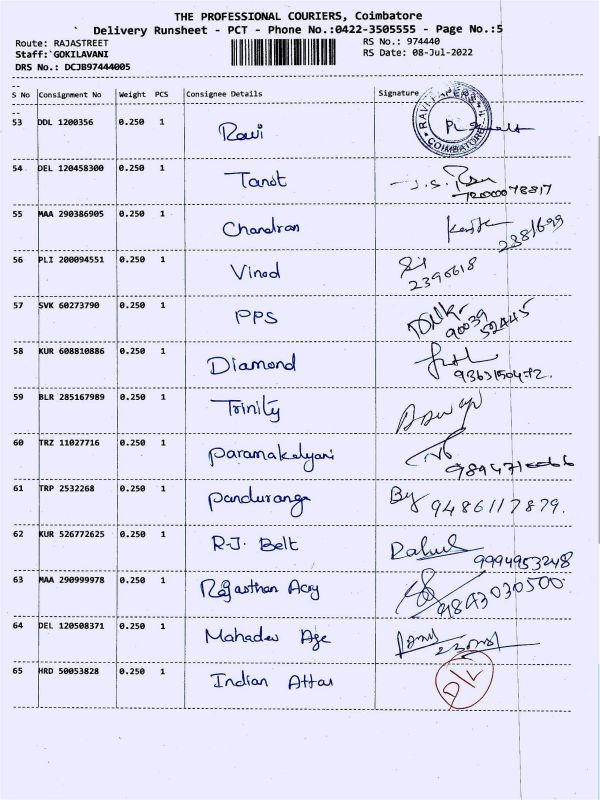 THE PROFESSIONAL COURIERS, Coimbatore
Delivery Runsheet - PCT - Phone No.:0422-3505555 - Page No.:5
Route: RAJASTREET RS No.: 974440
Staff:`GOKILAVANI RS Date: 08-Jul-2022
DRS No.: DCJB97444005
S No Consignment No Weight PCS Consignee Details Signature
53 DDL 1200356 0.250 1 Ravi
RAVI PAPERS COIMBATORE
54 DEL 120458300 0.250 1 Tanot
55 MAA 290386905 0.250 1 Chandran
2381699
56 PLI 200094551 0.250 1 Vinod
2390618
57 SVK 60273790 0.250 1 PPS
90039
52445
58 KUR 608810886 0.250 1 Diamond
9363150472.
59 BLR 285167989 0.250 1 Trinity
60 TRZ 11027716 0.250 1 Paramakalyani
61 TRP 2532268 0.250 1 Panduranga By 9486117879.
62 KUR 526772625 0.250 1 R.J. Belt Rahul
9994953248
63 MAA 290999978 0.250 1 Rajasthan Acry
9843030500
64 DEL 120508371 0.250 1 Mahadev Age
65 HRD 50053828 0.250 1 Indian Attar D/L